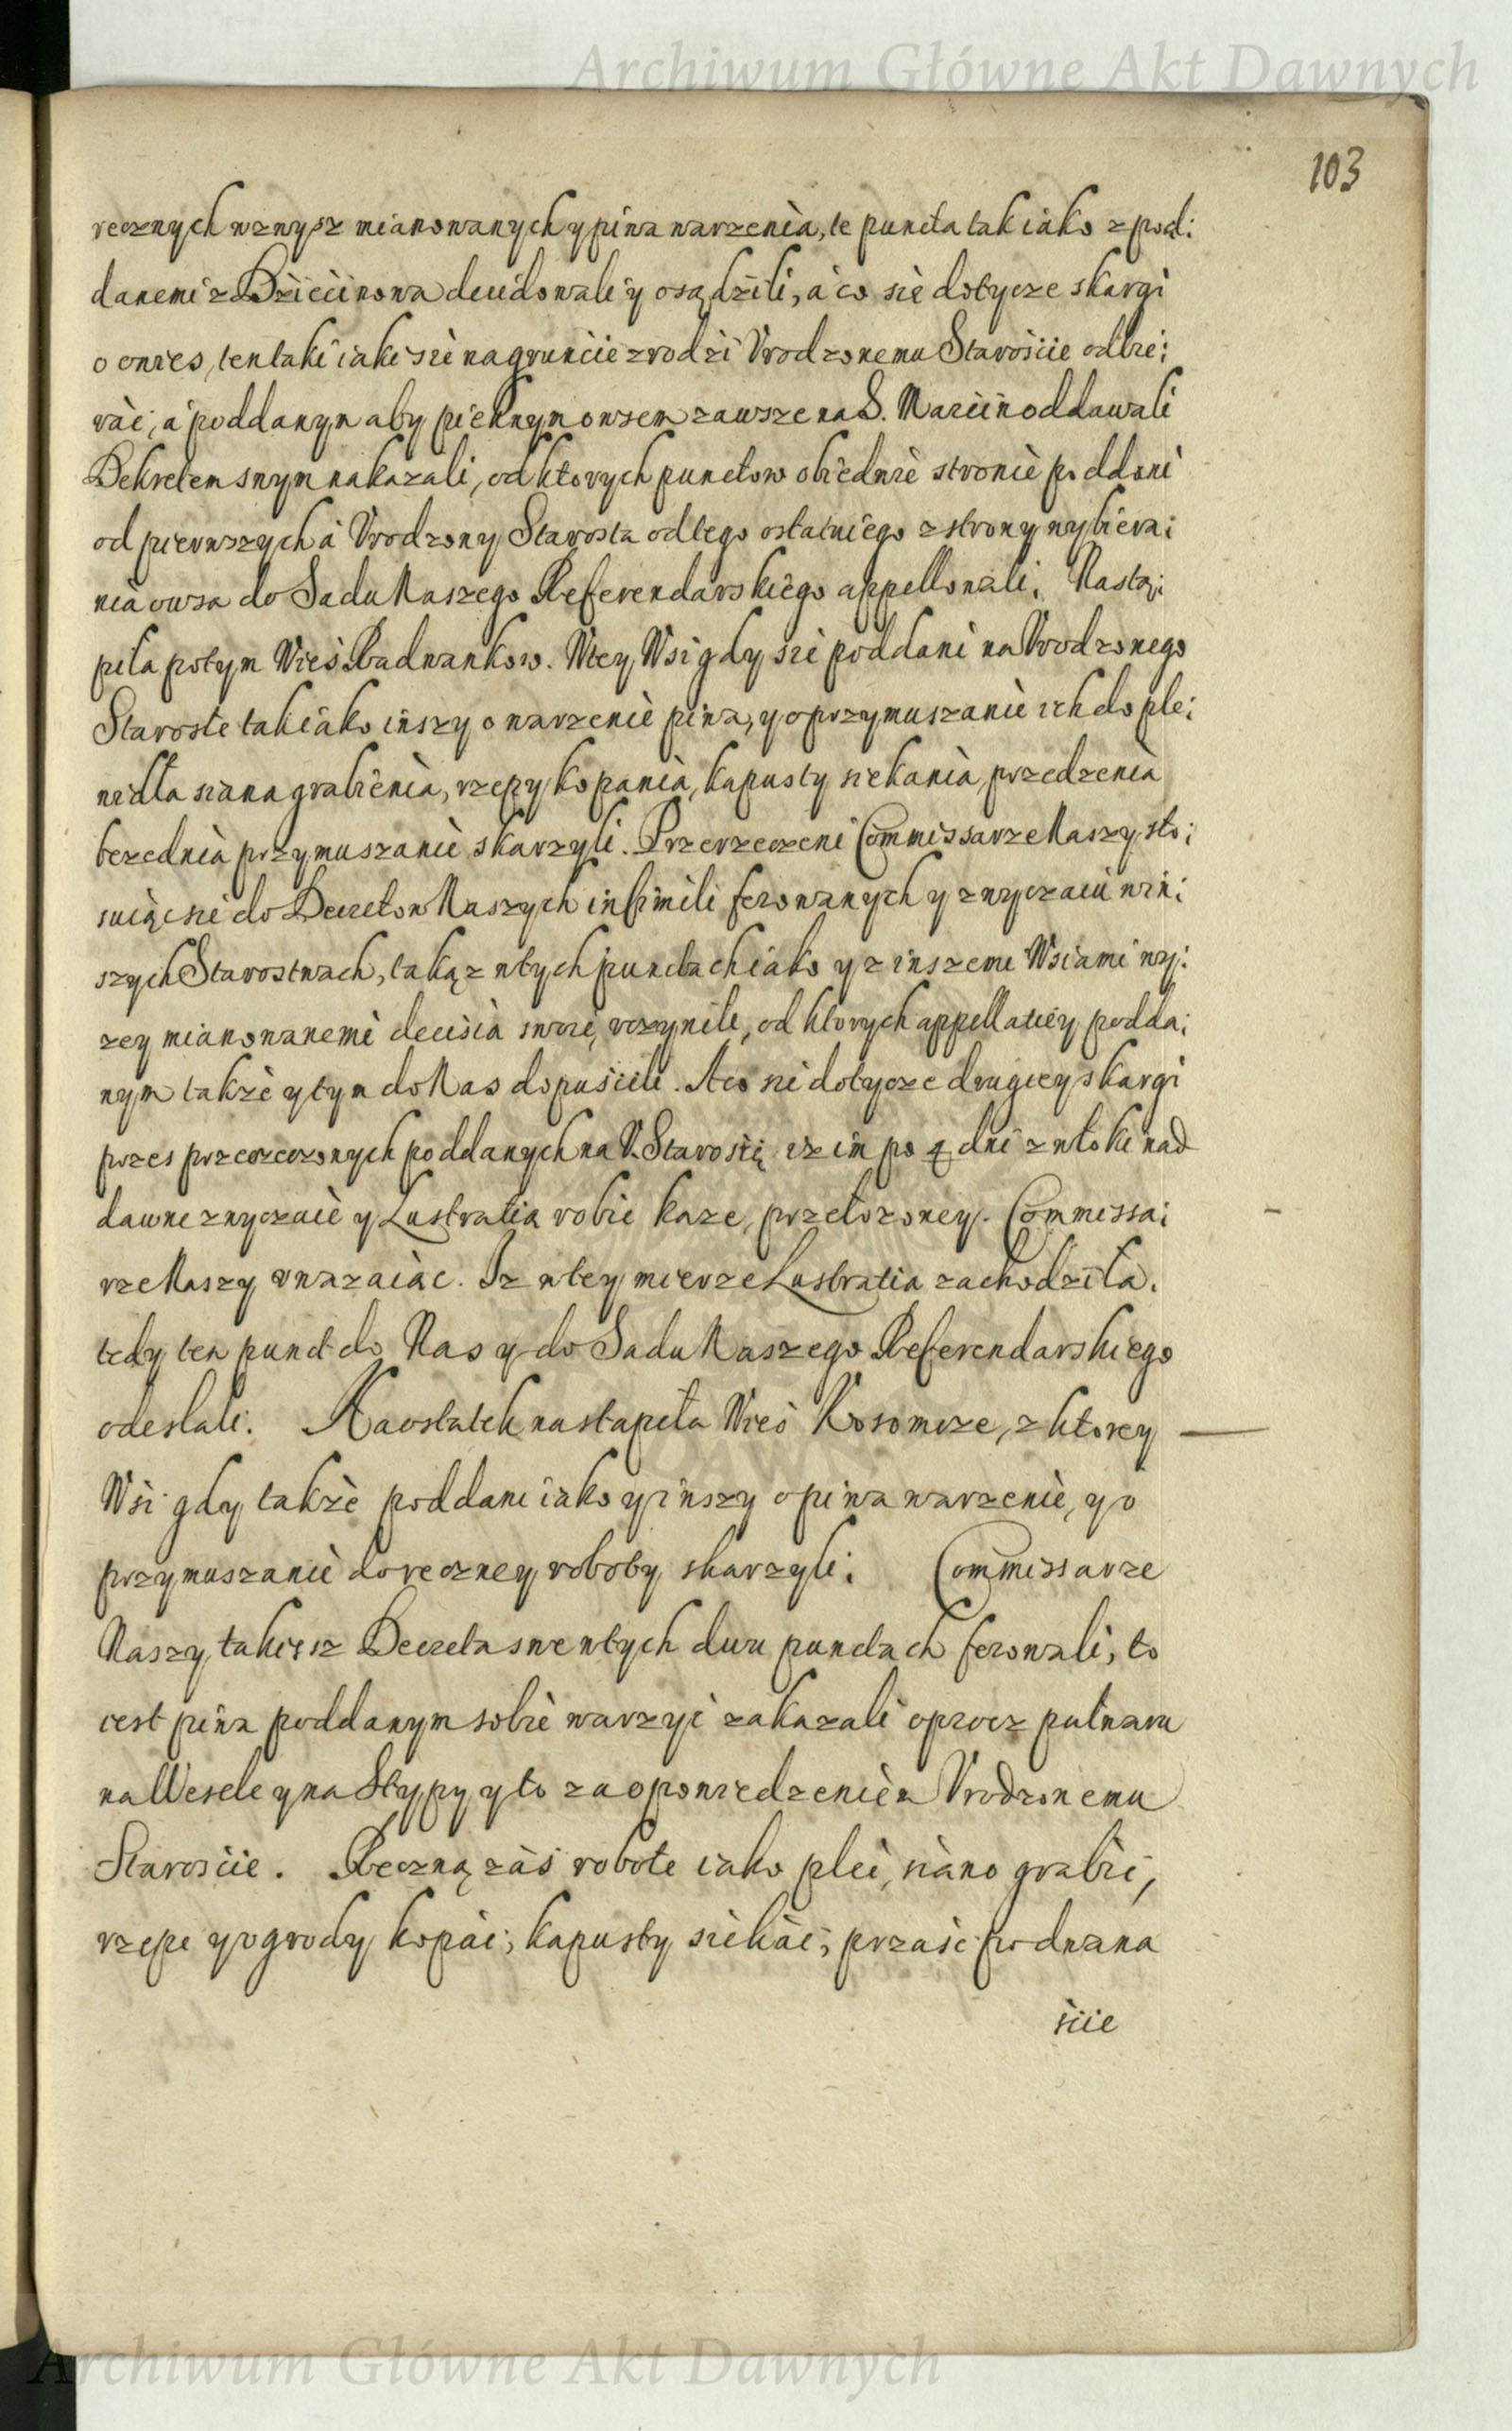 Archiwum Główne Akt Dawnych
103
recznych wzwysz mianowanych y piwa warzenia, te puncta tak iako z pod:
danemi z Dziecinowa decidowali y osądzili, a co sie dotycze skargi
o owies, ten taki iaki sie na gruncie zrodzi Vrodzonemu Staroscie odbie:
rac, a poddanym aby pieknym owsem zawsze na S. Marcin oddawali
Dekretem swym nakazali, od ktorych punctow obiedwie stronie poddani
od pierwszych a Vrodzony Starosta od tego ostatniego z strony wybiera:
nia owsa do Sadu Naszego Referendarskiego appellowali. Nastą:
piła potym Wies Radwankow. W tey Wsi gdy sie poddani na Vrodzonego
Staroste tak iako inszy o warzenie piwa, y o przymuszanie ich do ple:
widła siana grabienia, rzepy kopania, kapusty siekania, przedzenia
bezednia przymuszanie skarzyli. Przerzeczeni Commissarze Naszy sto:
suiąc sie do Decretow Naszych in simili ferowanych y zwyczaiu w in:
szych Starostwach, takąz w tych punctach iako y z inszemi Wsiami wy:
zey mianowanemi decisia swoię vczynili, od ktorych appellatiey podda:
nym takze y tym do Nas dopuscili. A co sie dotycze drugiey skargi
przes przerzeczonych poddanych na V. Starostę iz im po 4 dni z włoki nad
dawne zwyczaie y Lustratia robic kaze, przełozoney. Commissa:
rze Naszy vwazaiąc. Iz w tey mierze Lustratia zachodziła.
tedy ten punct do Nas y do Sadu Naszego Referendarskiego
odesłali. Na ostatek nastapiła Wies Kosomrze, z ktorey
Wsi gdy takze poddani iako y inszy o piwa warzenie, y o
przymuszanie do reczney roboty skarzyli: Commissarze
Naszy takiesz Decreta swe w tych dwu punctach ferowali, to
iest piwa poddanym sobie warzyc zakazali oprocz pułwaru
na Wesele y na Stypy y to za opowiedzeniem Vrodzonemu
Staroscie. Reczną zas robote iako plec, siano grabic,
rzepe y ogrody kopac, kapusty siekac, przasc podwana
scie
Archiwum Główne Akt Dawnych